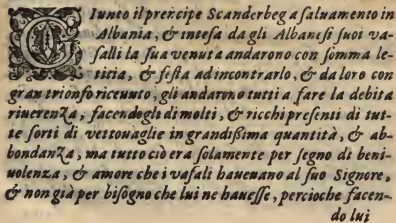 GIunto il prencipe Scanderbeg a saluamento in
Albania, & intesa da gli Albanesi suoi va-
salli la sua venuta andarono con somma le-
ticia, & festa ad incontrarlo, & da loro con
gran trionfo riceuuto, gli andarono tutti a fare la debita
riuerenza, facendogli di molti, & ricchi presenti di tut-
te sorti di vettouaglie in grandißima quantità, & ab-
bondanza, ma tutto ciò era solamente per segno di beni-
uolenza, & amore che i vasali haueuano al suo Signore,
& non già per bisogno che lui ne hauesse, percioche facen-
do lui